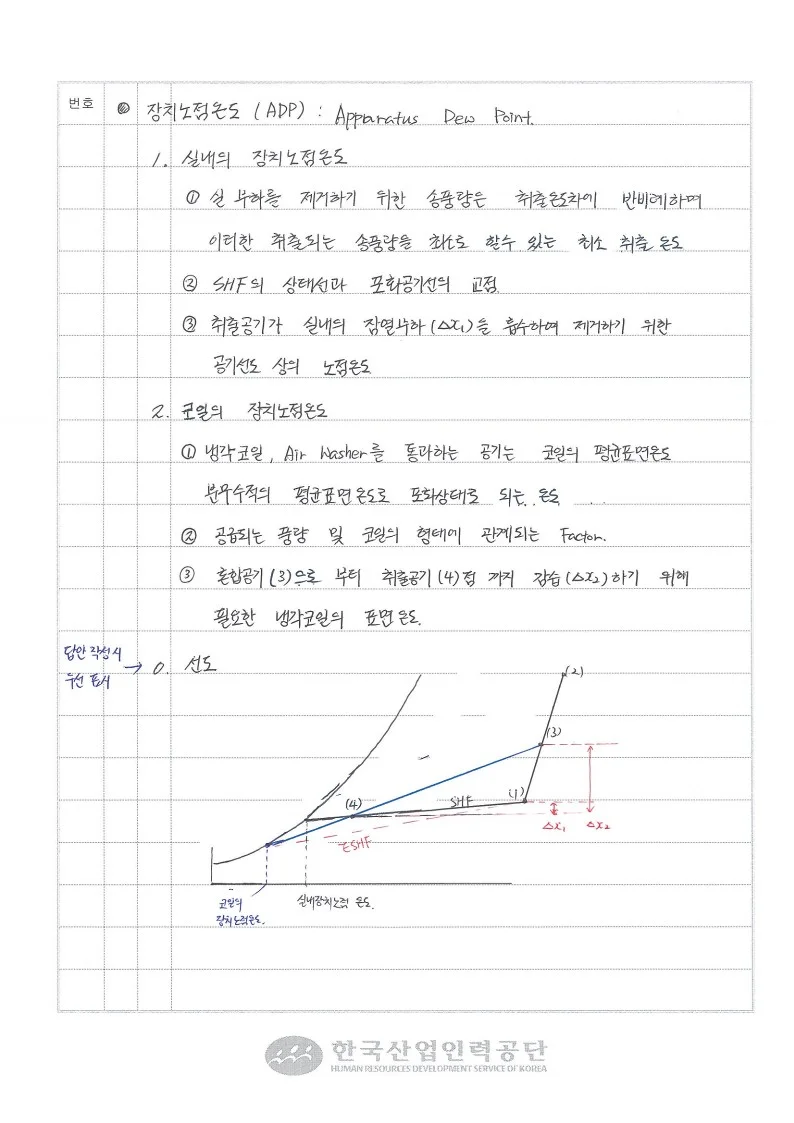 번호
◎ 장치노점온도 (ADP) : Apparatus Dew Point.
1. 실내의 장치노점온도
① 실 부하를 제거하기 위한 송풍량은 취출온도차에 반비례하며
이러한 취출되는 송풍량을 최소로 할수 있는 최소 취출 온도
② SHF의 상태선과 포화공기선의 교점
③ 취출공기가 실내의 잠열부하(Δx₁)을 흡수하여 제거하기 위한
공기선도 상의 노점온도
2. 코일의 장치노점온도
① 냉각코일, Air Washer를 통과하는 공기는 코일의 평균표면온도
분무수적의 평균표면온도로 포화상태로 되는 온도
② 공급되는 풍량 및 코일의 형태에 관계되는 Factor.
③ 혼합공기(3)으로 부터 취출공기(4)점 까지 감습(Δx₂)하기 위해
필요한 냉각코일의 표면온도.
답안 작성시
우선 표시 → 0. 선도
(2)
(3)
(4) SHF (1)
Δx₁ Δx₂
ESHF
코일의 실내장치노점 온도.
장치노점온도.
한국산업인력공단
HUMAN RESOURCES DEVELOPMENT SERVICE OF KOREA